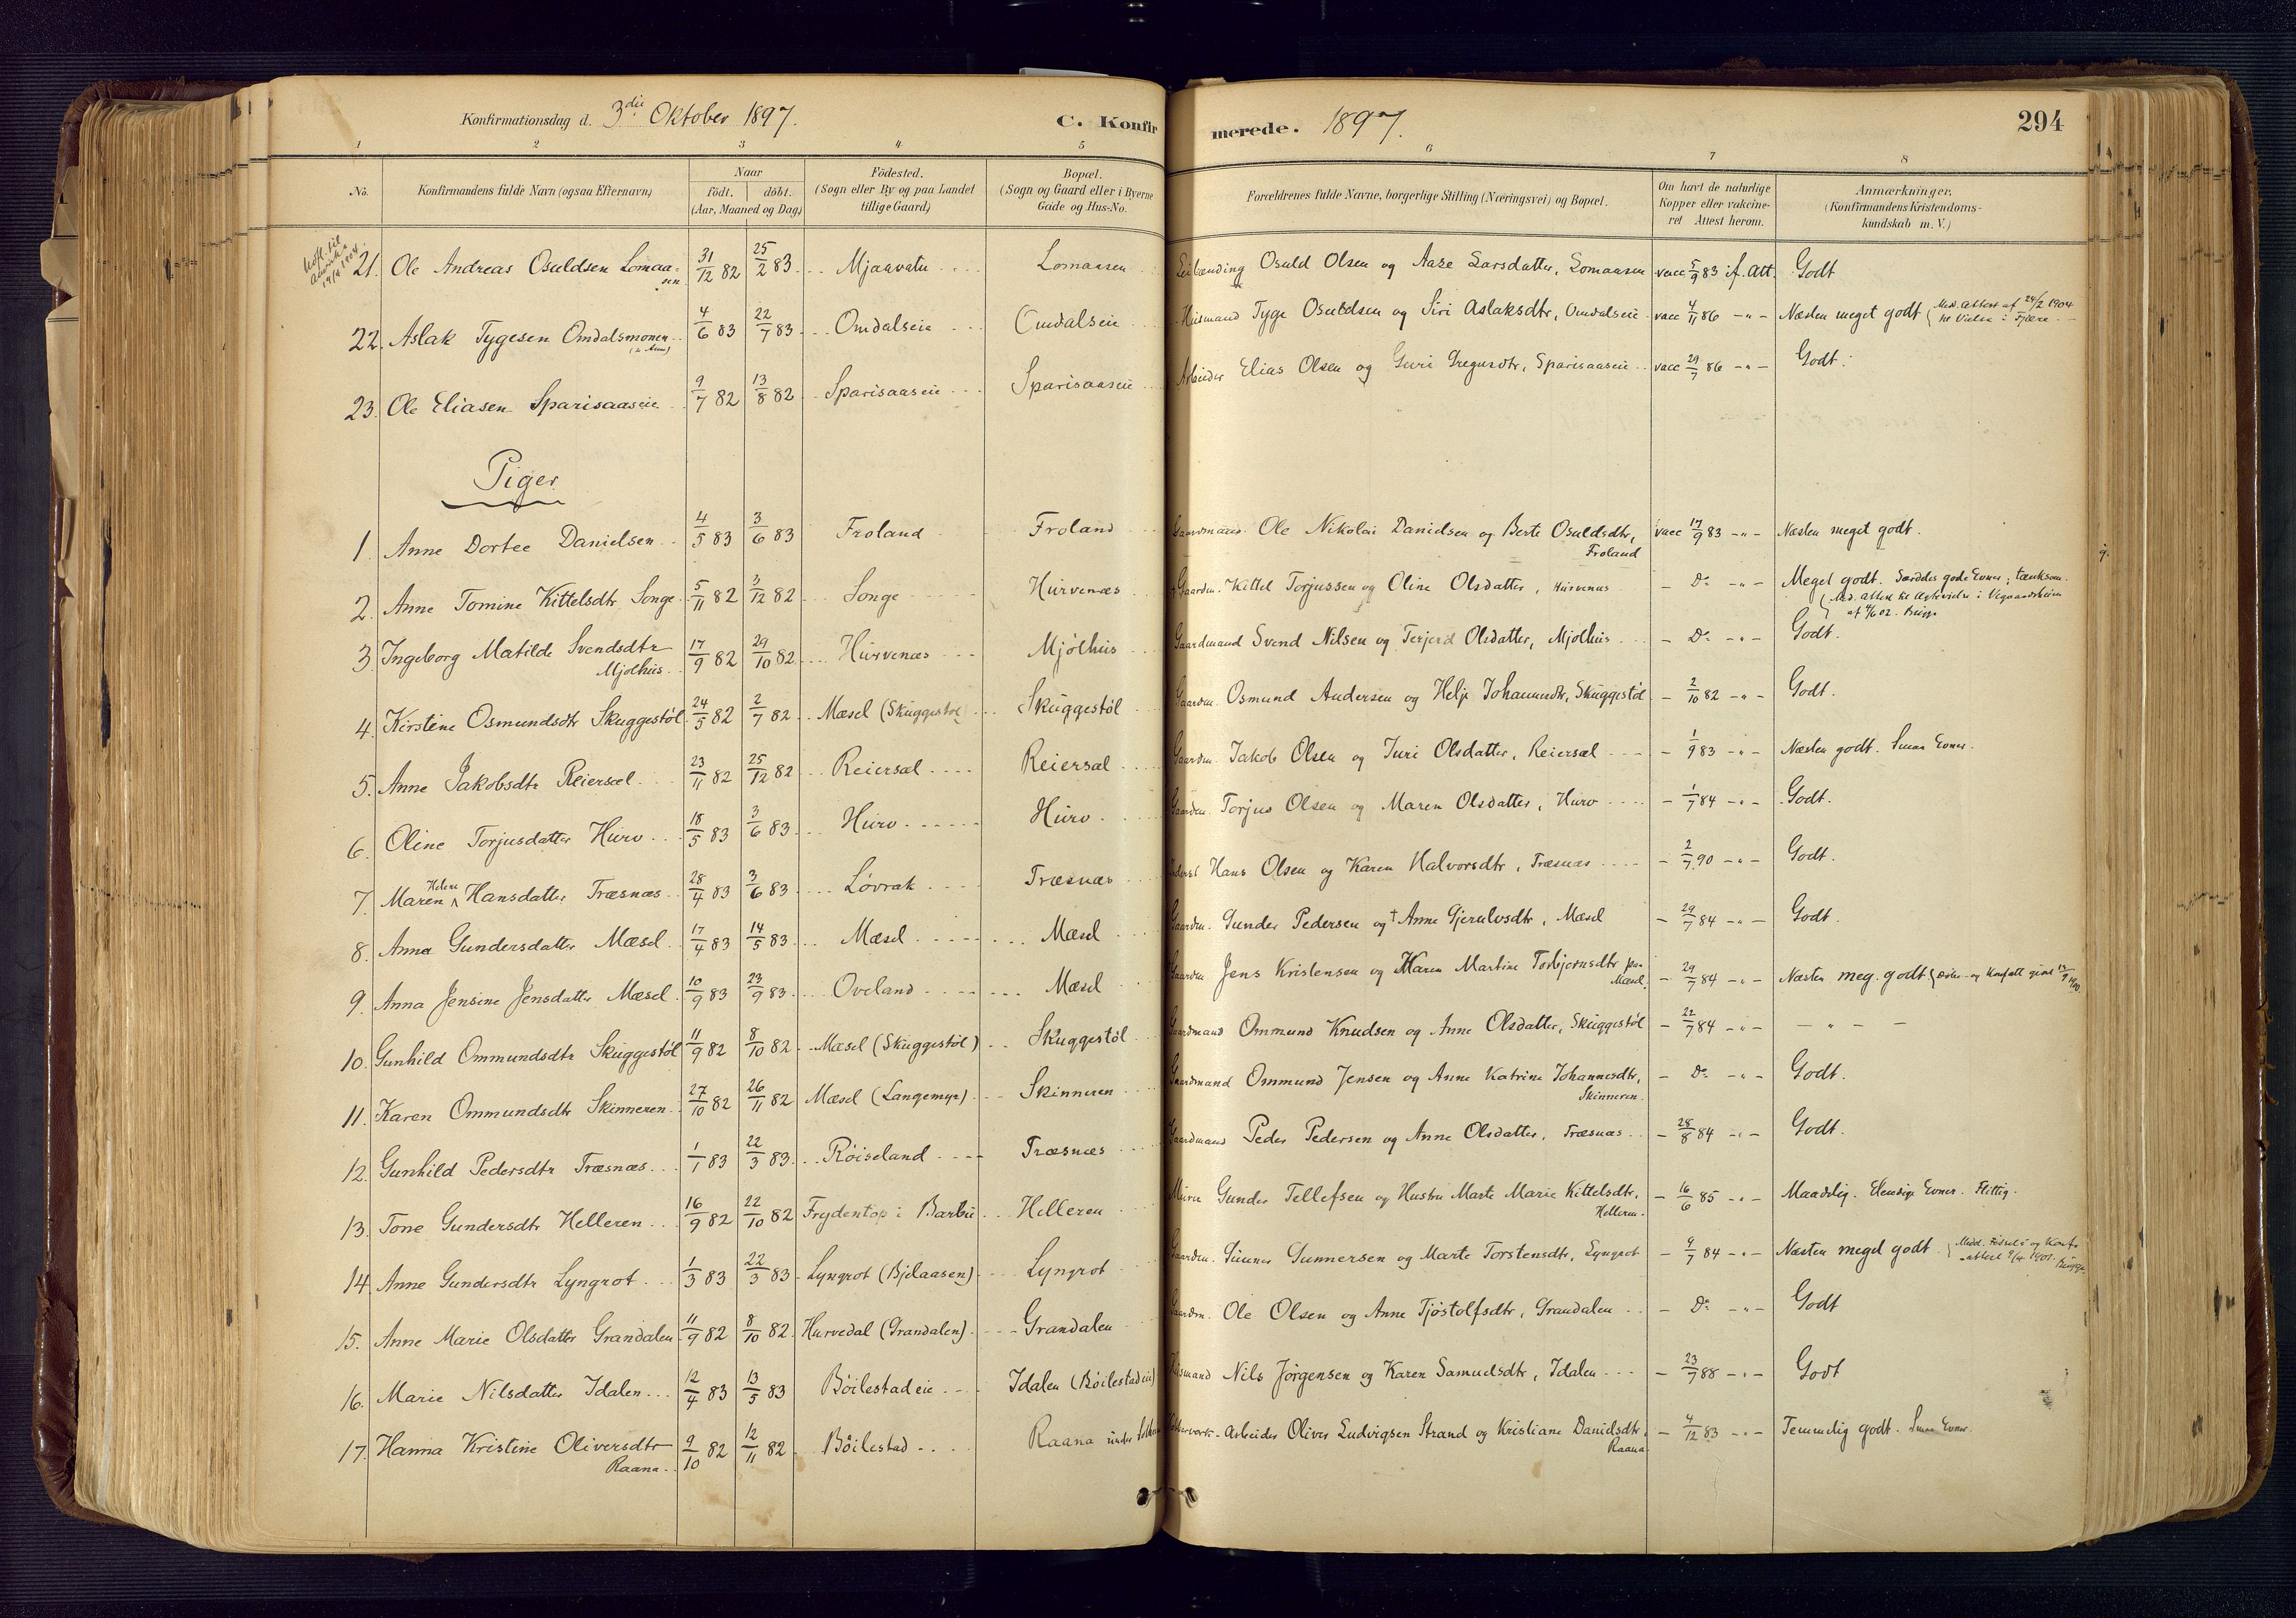 Konfirmationsdag d. 3die Oktober 1897. C. Konfirmerede. 1897. 294
1 2 3 4 5 6 7 8
No. Konfirmandens fulde Navn (ogsaa Efternavn) Naar födt. döbt. (Aar, Maaned og Dag) Födested. (Sogn eller By og paa Landet tillige Gaard) Bopæl. (Sogn og Gaard eller i Byerne Gade og Hus-No. Forældrenes fulde Navne, borgerlige Stilling (Næringsvei) og Bopæl. Om havt de naturlige Kopper eller vakcineret Attest herom. Anmærkninger, (Konfirmandens Kristendomskundskab m. V.)
21. Ole Andreas Osuldsen Lomaasen 31/12 82 25/2 83 Mjaavatn Lomaasen Leilænding Osuld Olsen og Aase Larsdatter, Lomaasen vacc 5/9 83 if. Att. Godt
22. Aslak Tygesen Omdalsmonen 4/6 83 22/7 83 Omdalseie Omdalseie Husmand Tyge Osuldsen og Siri Aslaksdtr, Omdalseie vacc 4/11 86 -"- Næsten meget godt (Med. Attest af 24/2 1904 til Vielse i Fjære.
23. Ole Eliasen Sparisaaseie 9/7 82 13/8 82 Sparisaaseie Sparisaaseie Arbeider Elias Olsen og Guri Gregersdtr, Sparisaaseie vacc 29/7 86 -"- Godt.
Piger
1. Anne Dortee Danielsen 4/5 83 3/6 83 Froland Froland Gaardmand Ole Nikolai Danielsen og Berte Osuldsdtr, Froland vacc 17/9 83 -"- Næsten meget godt.
2. Anne Tomine Kittelsdtr Songe 5/11 82 3/12 82 Songe Hurvenæs Gaardm. Kittel Torjussen og Oline Olsdatter, Hurvenes - Do -"- Meget godt. Særdeles gode Evner; tænksom.
3. Ingeborg Matilde Svendsdtr Mjölhus 17/9 82 29/10 82 Hurvenæs Mjölhus Gaardmand Svend Nilsen og Terjerd Olsdatter, Mjölhus - Do -"- Godt.
4. Kirstine Osmundsdtr Skuggestöl 24/5 82 2/7 82 Mæsel (Skuggestöl) Skuggestöl Gaardm. Osmund Andersen og Helje Johannesdtr, Skuggestöl - 2/10 82 -"- Godt.
5. Anne Jakobsdtr Reiersæl 23/11 82 25/12 82 Reiersæl Reiersæl Gaardm. Jakob Olsen og Juri Olsdatter, Reiersæl - 1/9 83 -"- Næsten godt. Smaa Evner.
6. Oline Torjusdatter Hurv 18/5 83 3/6 83 Hurv Hurv Gaardm. Torjus Olsen og Maren Olsdatter, Hurv - 1/7 84 -"- Godt.
7. Maren Helene Hansdatter Træsnæs 28/4 83 3/6 83 Lövrak Træsnæs Hans Olsen og Karen Halvorsdtr, Træsnæs - 2/7 90 -"- Godt.
8. Anna Gundersdatter Mæsel 17/4 83 14/5 83 Mæsel Mæsel Gaardm. Gunder Pedersen og † Anne Gjerulvsdtr, Mæsel - 29/7 84 -"- Godt.
9. Anna Jensine Jensdatter Mæsel 10/9 83 23/9 83 Oveland Mæsel Gaardm Jens Kristensen og Karen Martine Torbjørnsdtr paa Mæsel. - 29/7 84 -"- Næsten meg. godt
10. Gunhild Ommundsdtr Skuggestöl 11/9 82 8/10 82 Mæsel (Skuggestöl) Skuggestöl Gaardmand Ommund Knudsen og Anne Olsdatter, Skuggestöl - 22/7 84 -"- - " - -
11. Karen Ommundsdtr Skinneren 27/10 82 26/11 82 Mæsel (Langemyr) Skinneren Gaardmand Ommund Jensen og Anne Katrine Johannesdtr, Skinneren. - Do -"- Godt.
12. Gunhild Pedersdtr Træsnæs 1/1 83 22/3 83 Röiseland Træsnæs Gaardmand Peder Pedersen og Anne Olsdatter, Træsnæs - 28/8 84 -"- Godt.
13. Tone Gundersdtr Helleren 16/9 82 22/10 82 Frydentop i Barbu Helleren Murer Gunder Tellefsen og Hustru Marte Marie Kittelsdtr, Helleren. - 16/6 85 -"- Maadelig. Elendige Evner. Flittig.
14. Anne Gundersdtr Lyngrot 1/3 83 22/3 83 Lyngrot (Bjelaasen) Lyngrot Gaardm. Gunner Gunnersen og Marte Torstensdtr, Lyngrot - 9/7 84 -"- Næsten meget godt.
15. Anne Marie Olsdatter Grandalen 11/9 82 8/10 82 Hurvedal (Grandalen) Grandalen Gaardm. Ole Olsen og Anne Tjöstolfsdtr, Grandalen - Do -"- Godt
16. Marie Nilsdatter Idalen 12/4 83 13/5 83 Böilestadeie Idalen (Böilestadeie) Husmand Nils Jörgensen og Karen Samuelsdtr, Idalen - 23/7 88 -"- Godt
17. Hanna Kristine Oliversdtr Raana 9/10 82 12/11 82 Böilestad Raana under Arbeider Oliver Ludvigsen Strand og Kristiane Danielsdtr, Raana - 4/12 83 -"- Temmelig godt. Smaa Evner.